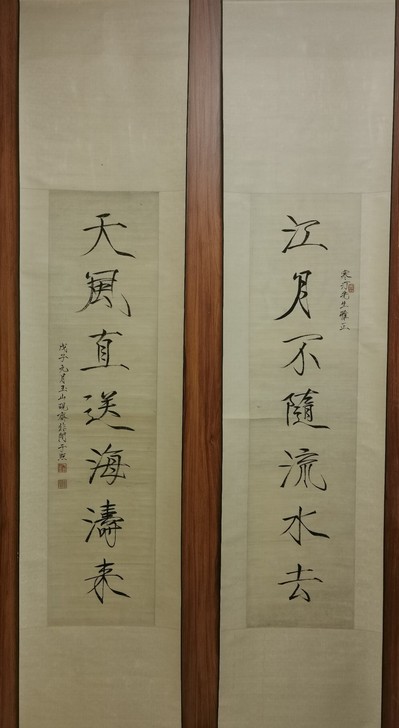 江月不隨流水去
先生雅正
天風直送海濤來
戊子元月玉山